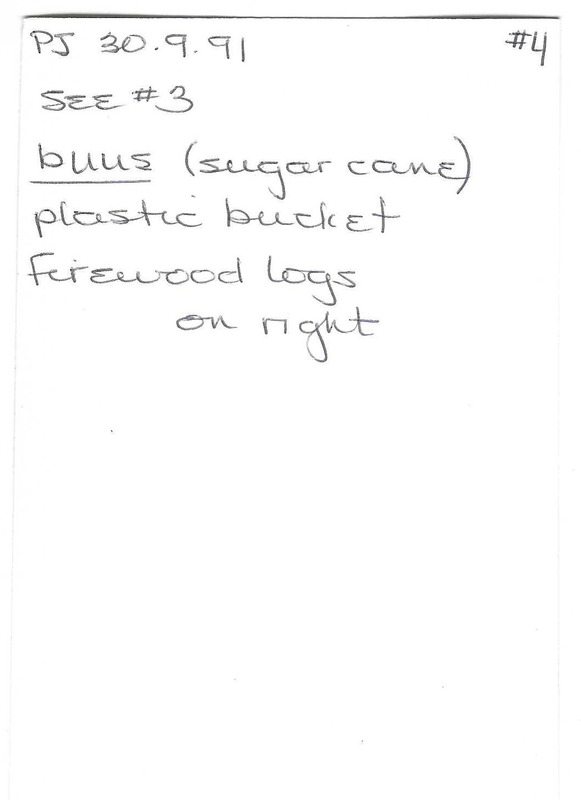 PJ 30.9.91 #4
SEE #3
buus (sugar cane)
plastic bucket
firewood logs
on right